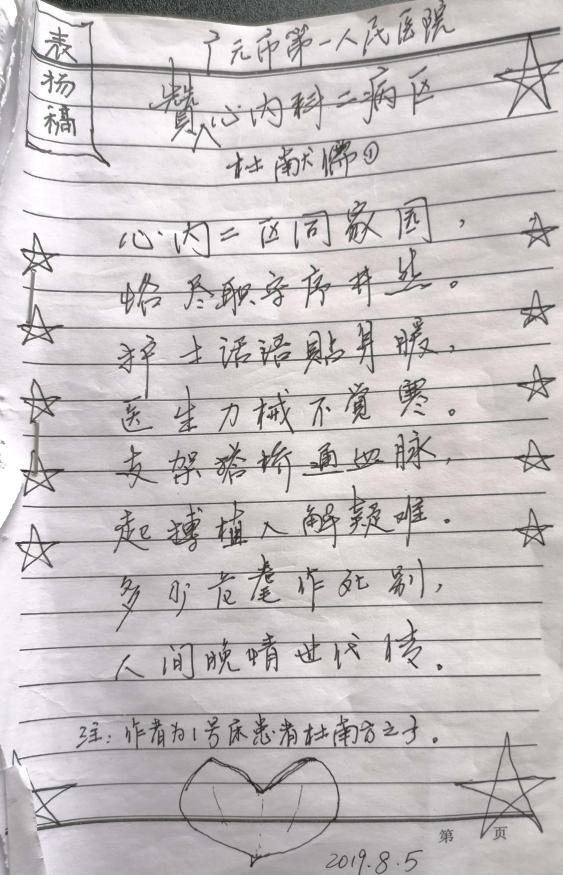 表扬稿
广元市第一人民医院
赞心内科二病区
杜献儒①
心内二区同家园，
恪尽职守序井然。
护士话语贴身暖，
医生力械不觉寒。
支架搭桥通血脉，
起搏植入解疑难。
多少危耄作死别，
人间晚晴世代传。
注：作者为1号床患者杜南方之子。
第 页
2019.8.5